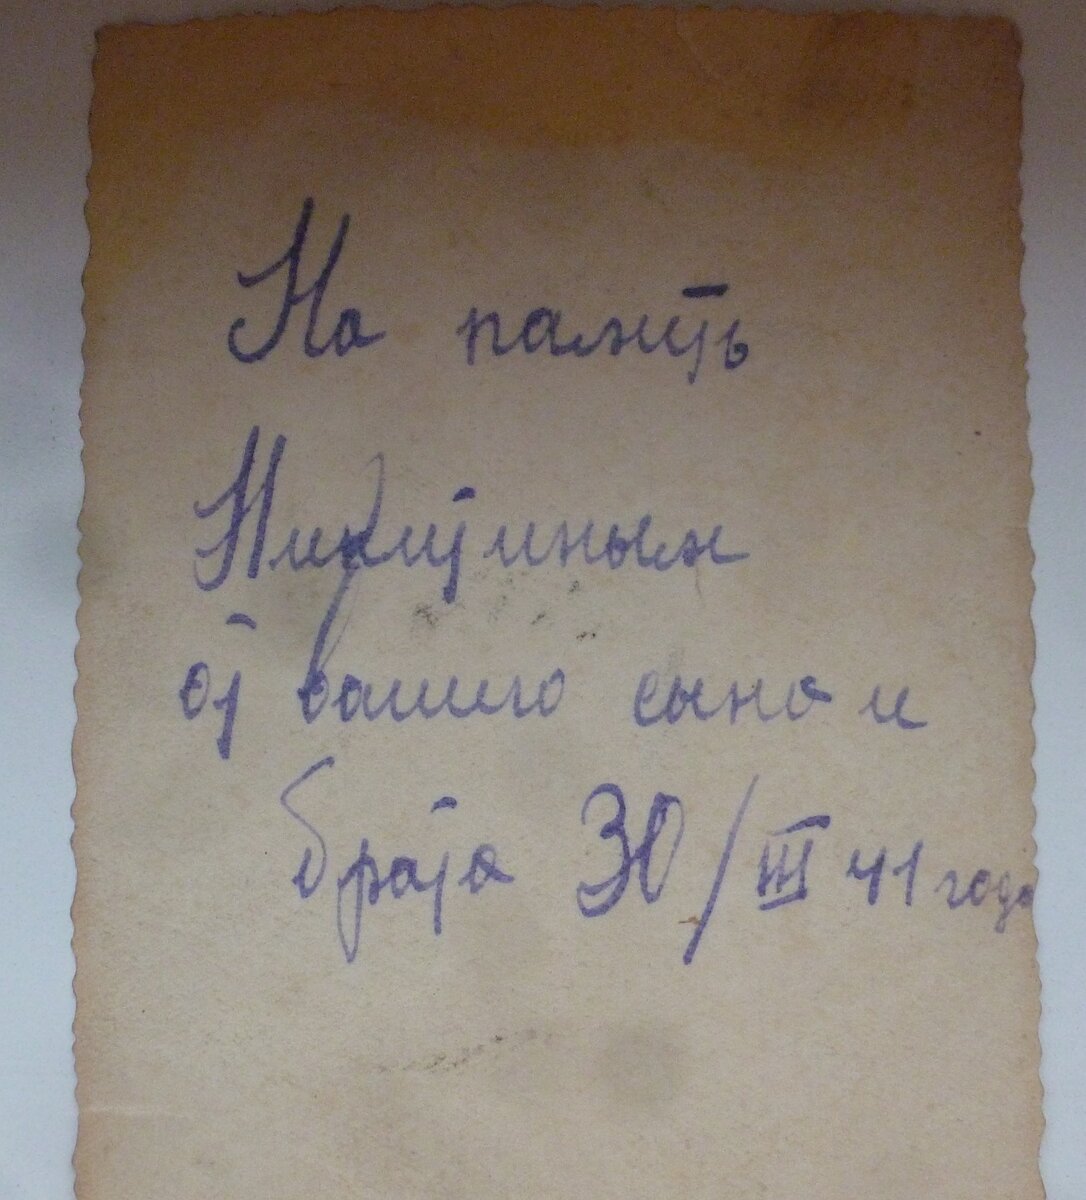 На память
Никитиным
от вашего сына и
брата 30/III 41 года